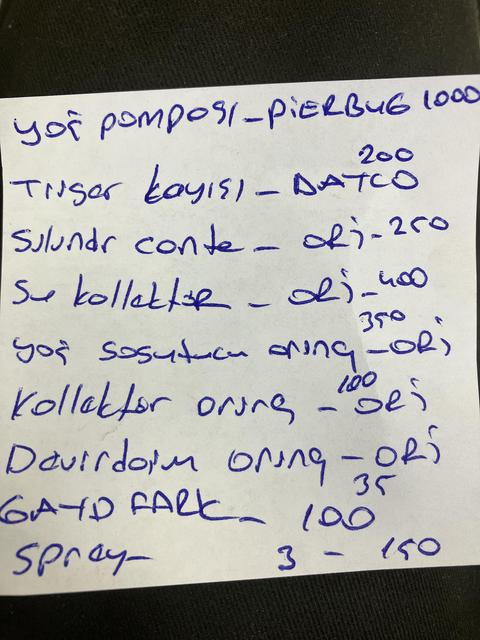 yağ pompası - PiERBUG 1000
200
Triger kayışı - DAYCO
Silindr conta - ORJ - 250
Su kollektör - ORJ - 400
350
yağ soğutucu oring - ORJ
100
Kollektör oring - ORJ
Devirdaim oring - ORJ
35
GAYD FARK - 100
Sprey - 3 - 150